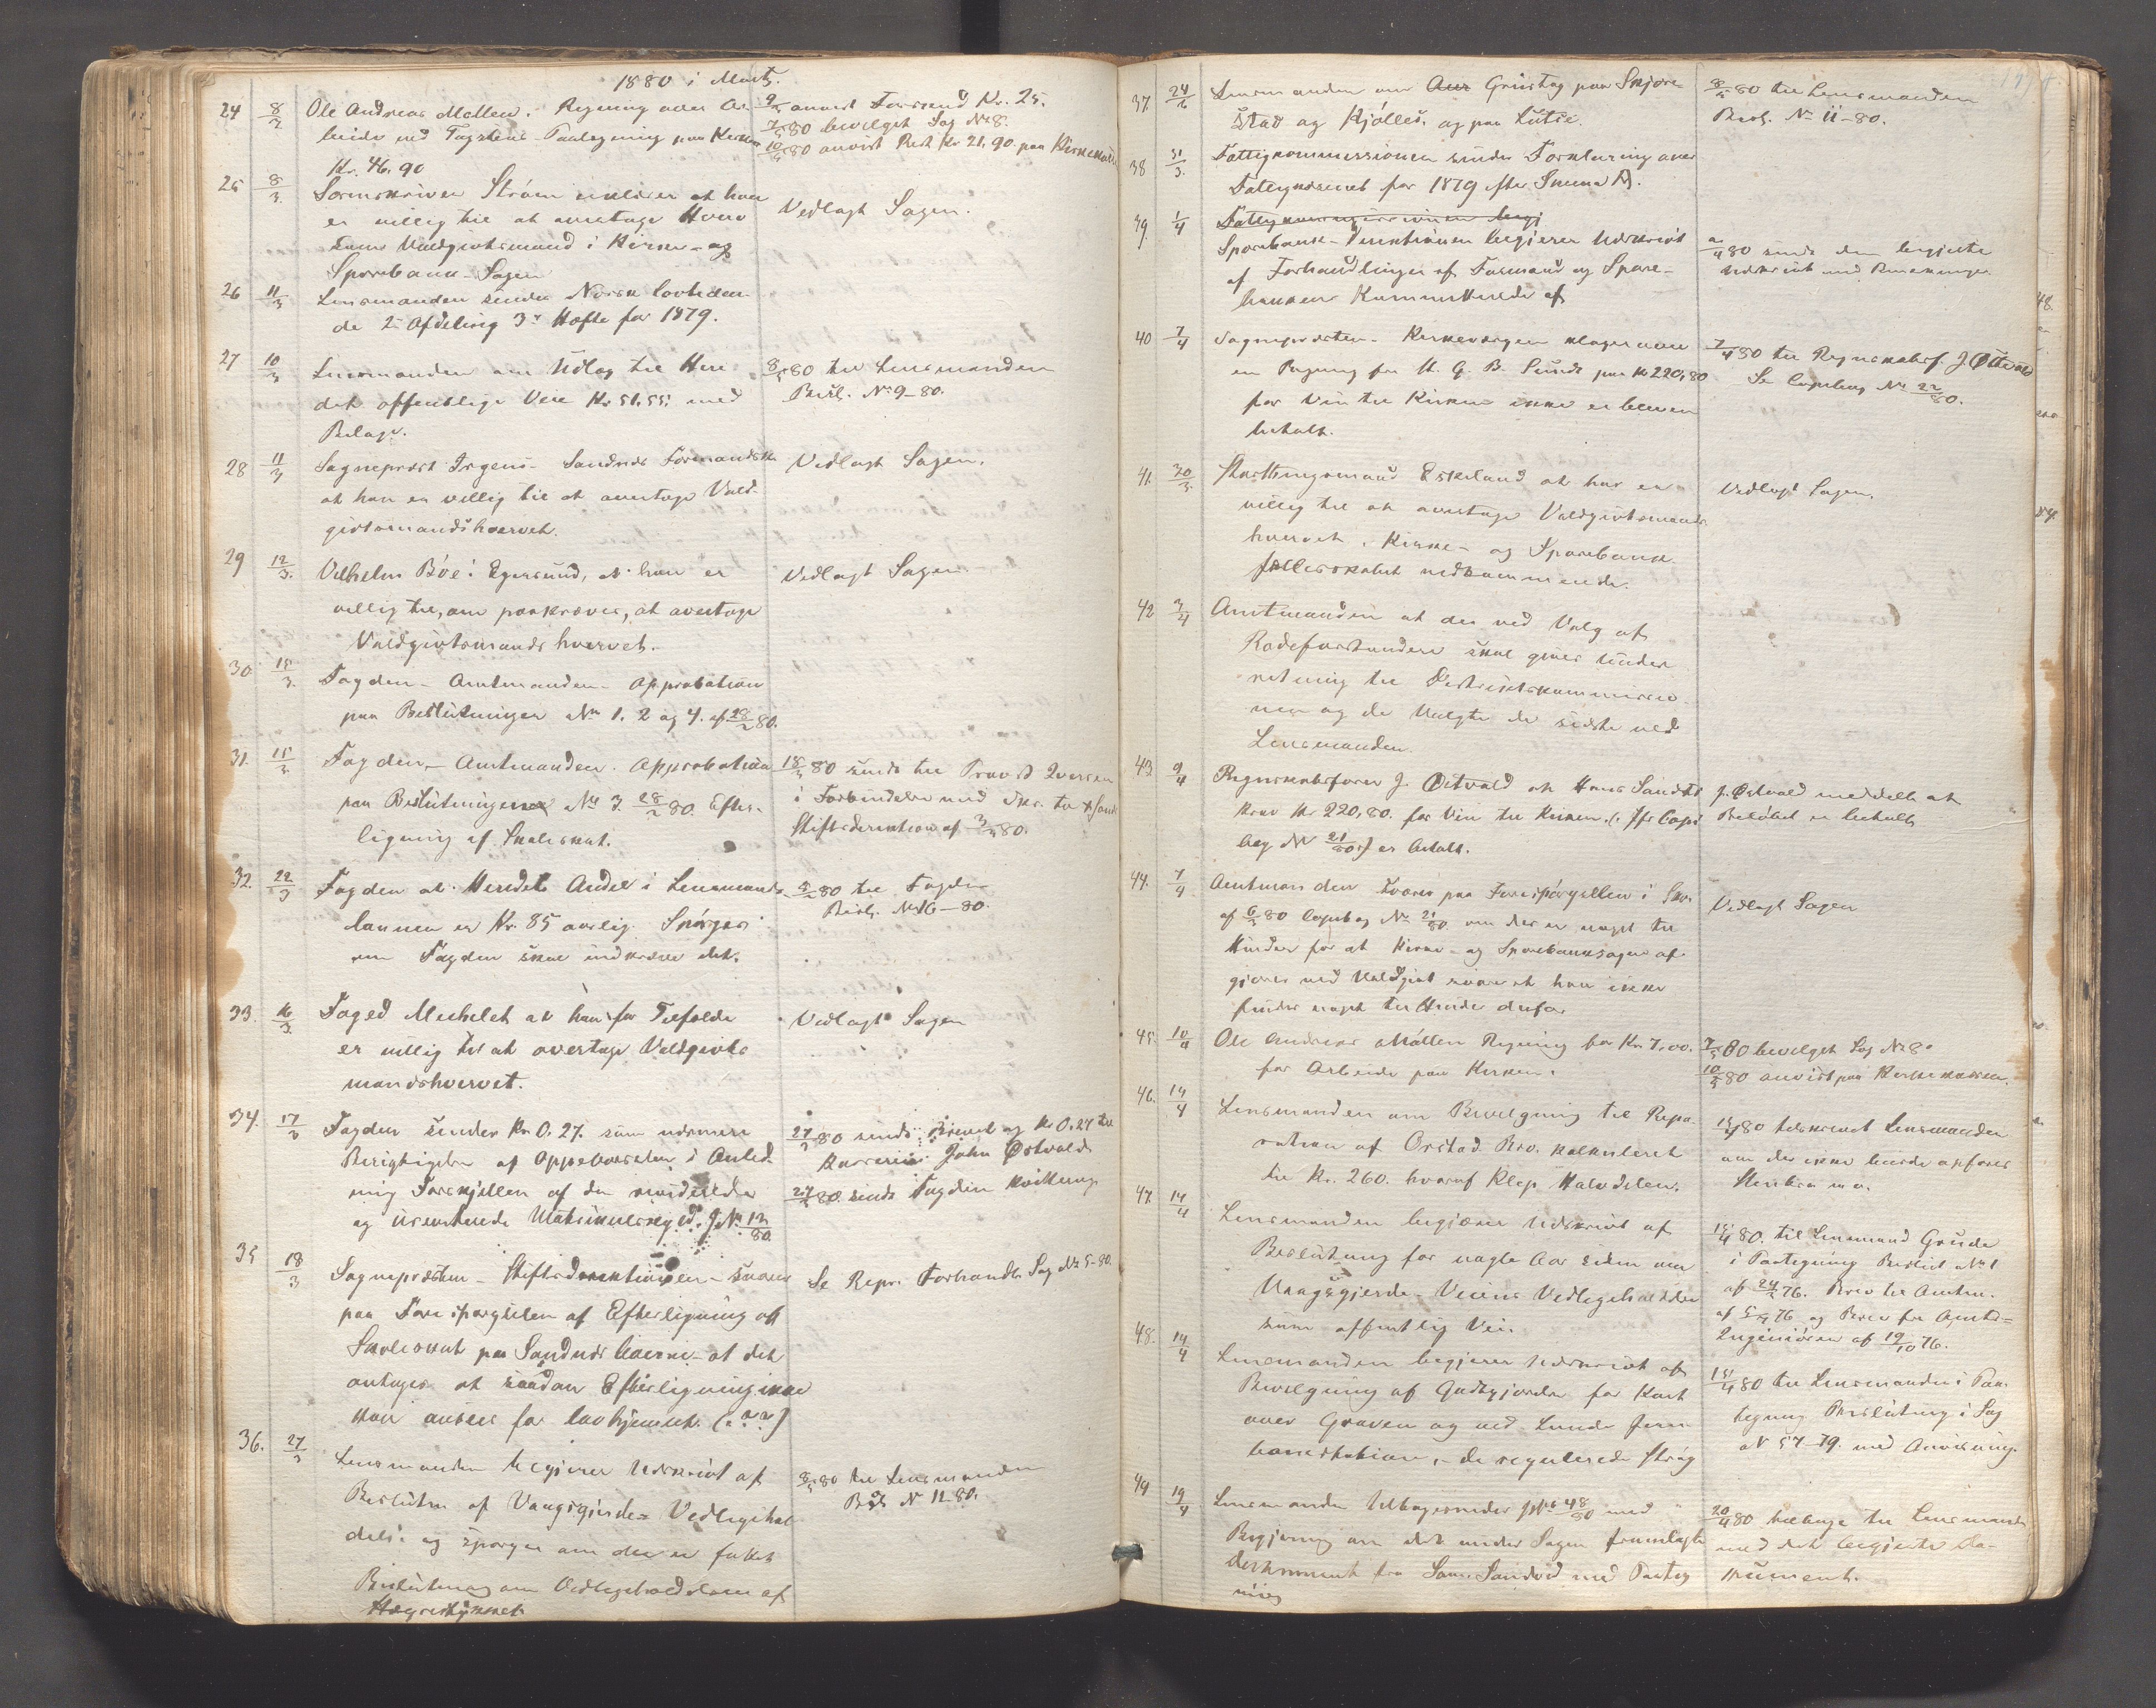 1880 i Marts.
24 8/3 Ole Andreas Møllen. Regning over Ar-
beide ved Tagstens Paalægning paa Kirken
Kr. 46.90
9/3 anvist Forskud Kr. 25.
7/5 80 bevilget Sag No 8.
10/5 80 anvist Rest Kr 21,90 paa Kirkekassen
25 8/3. Sorenskriver Strøm erklærer at han
er villig til at overtage Hverv
som Voldgivtsmand i Kirke- og
Sparebank-Sagen
Vedlagt Sagen.
26 11/3 Lensmanden sender Norsk Lovtiden-
de 2den Afdeling 3die Hefte for 1879.
27 10/3 Lensmanden om Udlæg til Here-
det offentlige Veie Kr. 51.55. med
Bilage.
8/5 80 til Lensmanden
Besl. No 9-80.
28 11/3 Sogneprest Irgens - Sandnes Formandsk
at han er villig til at overtage Vold-
givtsmandshvervet.
Vedlagt Sagen.
29 12/3. Vilhelm Bøe i Egersund, at han er
villig til, om paakræves, at overtage
Voldgivtsmandshvervet.
Vedlagt Sagen
30. 15/3. Fogden - Amtmanden - Approbation
paa Beslutninger No 1. 2 og 4. af 28/2 80.
31. 15/3 Fogden - Amtmanden. Approbation
paa Beslutningen No 3 28/2 80. Efter-
ligning af Skoleskat.
18/3 80 sendt til Provst
i Forbindelse med Skr. til
Stiftsdirektion af 3/3 80.
32. 22/3 Fogden at Heredets Andel i Lensmands-
lønnen er Kr. 85 aarlig. Spørger
om Fogden skal indkræve det.
80 til Fogden
Besl. No 16-80.
33. 16/3. Foged Michelet at han for Tilfælde
er villig til at overtage Voldgivts
mandshvervet.
Vedlagt Sagen
34. 17/3 Fogden sender Kr 0.27. som nærmere
Berigtigelse af Oppebørselen i Anled-
ning Forskjellen af den
og Matrikulskyld. J. No 12/80
27/3 80 sendt Brevet og Kr 0.27 til
Kasserer John Østvold
27/3 80 sendt Fogden Kvittering
35 18/3 Sognepresten - Stiftsdirektionen - svarer
paa Forespørgselen af Efterligning af
Skoleskat paa Sandnes Eierne - at det
antages at saadan Efterligning ikke
kan ansees for lovhjemlet.
Se Repr. Forhandl. Sag No 5-80.
36. 27/3 Lensmanden begjærer Udskrivt af
Beslutn. af Vaagsgjerde- Vedligehol-
delse og spørger om der er fattet
Beslutning om Vedligeholdelsen af
8/5 80 til Lensmanden
Besl. No 12-80.
37 24/3 Lensmanden om Grustag paa Skjære-
stad og Kjølleb. og paa Lutsi.
8/5 80 til Lensmanden
Besl. No 11-80.
38 31/3. Fattigkommissionen sender Forklaring over
Fattigvæsenet for 1879 efter Skema A.
39 1/4 Fattigkommissionen begj
Sparebank-Direktionen begjærer Udskrivt
af Forhandlinger af Formand og Spare-
bankens Kommitterede af
80 sendt den begjærte
Udskrivt med Bemærkninger
40 7/4 Sognepresten - Kirkeværgen klager over
en Regning fra H. G. B. Sundt paa Kr 220,80
for Vin til Kirken ikke er bleven
betalt.
7/4 80 til Regnskabsf. J Østvold
Se Copiebog No 22/80.
41. 30/3. Storthingsmand Eskeland at han er
villig til at overtage Voldgivtsmands
hvervet. Kirke- og Sparebank
fællesskabet vedkommende.
Vedlagt Sagen.
42 3/4 Amtmanden at der ved Valg af
Rodeforstandere skal gives Under-
retning til Distriktskommissio-
nen og de Valgte de sidste ved
Lensmanden.
43 9/4 Regnskabsfører J. Østvold at Hans Sandts
Krav Kr. 220,80. for Vin til Kirken (. Jfr Copi
bog No 21/80.) er betalt.
J. Østvold meddelt at
Beløbet er betalt
44. 7/4 Amtmanden svarer paa Forespørgselen i Skr.
af 6/3 80 Copibog No 21/80. om der er noget til
Hinder for at Kirke- og Sparebanksagen af-
gjøres ved Voldgivt svarer at han ikke
finder noget til Hinder derfor
Vedlagt Sagen
45. 10/4 Ole Andreas Møllen Regning for Kr. 7.00.
for Arbeide paa Kirken.
7/5 80 bevilget Sag No 8.
10/5 80 anvist paa Kirkekassen.
46. 14/4 Lensmanden om Bevilgning til Repa-
ration af Orstad Bro. kalkuleret
til Kr. 260. hvoraf Klep Halvdelen.
15/4 80 tilskrevet Lensmanden
om der ikke burde opføres
Stenbro m. v.
47. 14/4 Lensmanden begjærer Udskrivt af
Beslutning for nogle Aar siden om
Vaagsgjerde-Veiens Vedligeholdelse
som offentlig Vei.
15/4 80. til Lensmand Grude
i Paategning Beslut. No 1
af 24/2 76. Brev til Amtm.
af 5/ 76 og Brev fra Amts-
Ingeniøren af 19/10 76.
48. 14/4 Lensmanden begjærer Udskrivt af
Bevilgning af Godtgjørelse for Kart
over Graven og ved Lunde Jern-
banestation, - de regulerede Strøg
15/4 80 til Lensmanden i Paa-
tegning Beslutning i Sag
No 57-79. med Anvisning.
49 19/4 Lensmanden tilbagesender JNo 48/80 med
Begjæring om det under Sagen fremlagte
Dokument fra Sandved med Paateg-
ning
20/4 80 tilbage til Lensmand
med det begjærte Do-
kument.